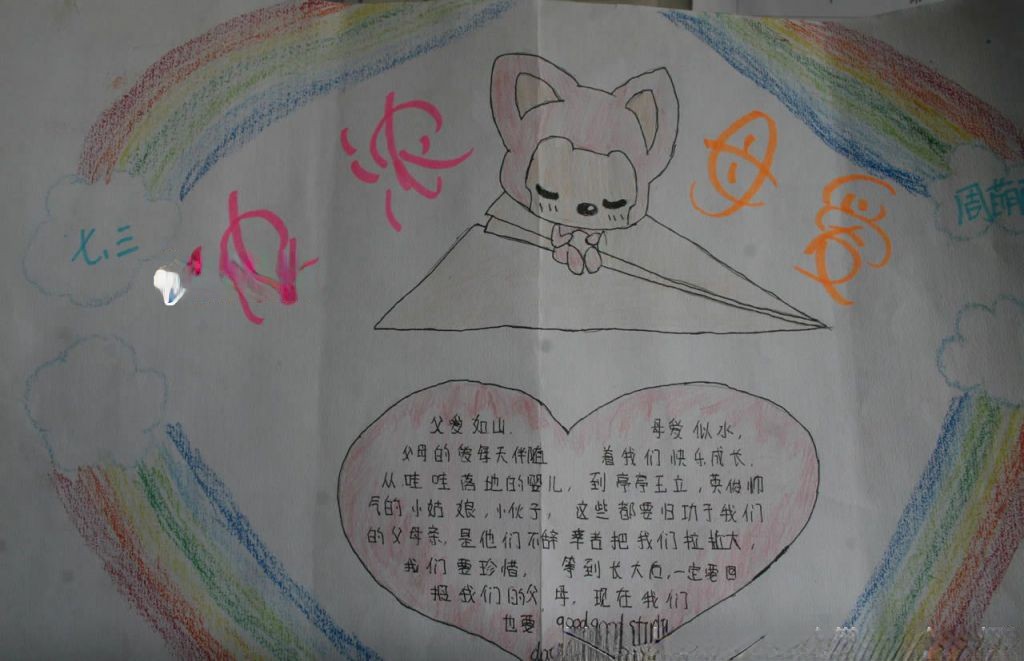 七、三
浓 母 爱
周萌
父爱如山. 母爱似水,
父母的爱每天伴随 着我们快乐成长.
从哇哇落地的婴儿, 到亭亭玉立,英俊帅
气的小姑娘,小伙子, 这些都要归功于我们
的父母亲,是他们不辞辛苦把我们拉扯大,
我们要珍惜, 等到长大后,一定要回
报我们的父母, 现在我们
也要 good good study